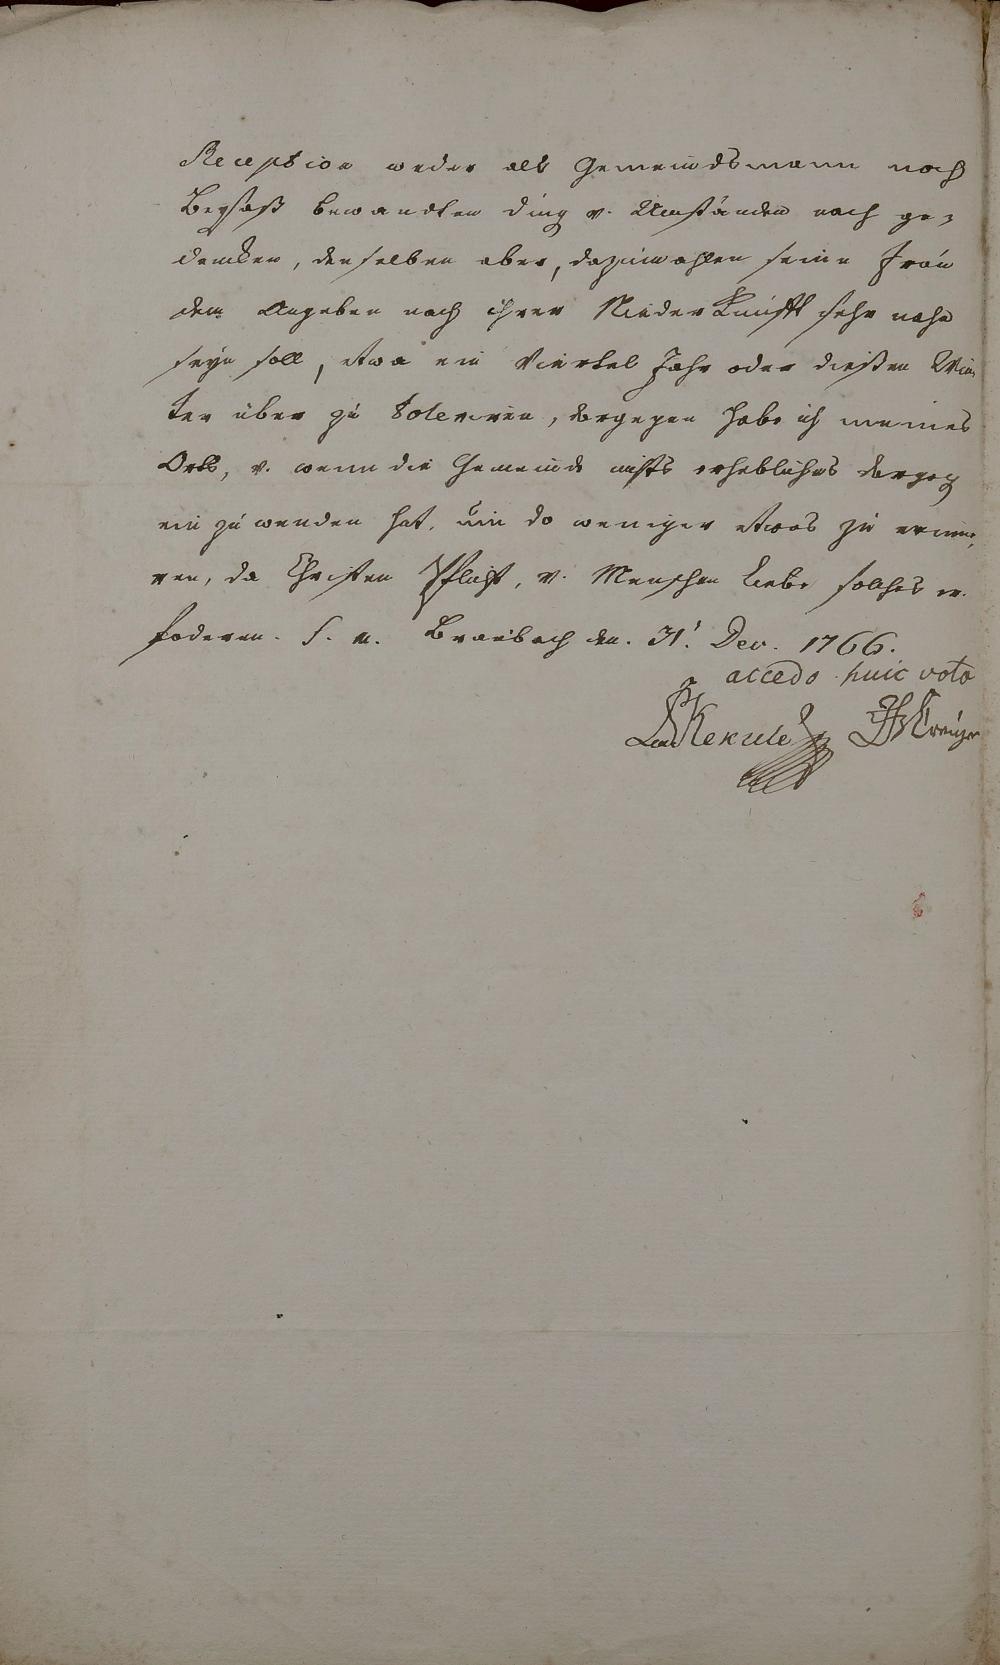 Reception weder als Gemeindsmann noch
Beysaß bewandten Ding u. Umständen nach ge-
dencken, denselben aber, dazumahlen seine Frau
dem Angeben nach ihrer Niederkunfft sehr nahe
seyn soll, etwa ein Viertel Jahr oder dießen Win-
ter über zu toleriren, dargegen habe ich meines
Orts, u. wenn die Gemeinde nichts erhebliches dargegen
ein zu wenden hat, um do weniger etwas zu erinne-
ren, da Christen Pflicht, u. Menschen Liebe solches er-
foderen. S. m. Braubach den 31. Dec. 1766.
accedo huic voto
Kekule Kreuzer